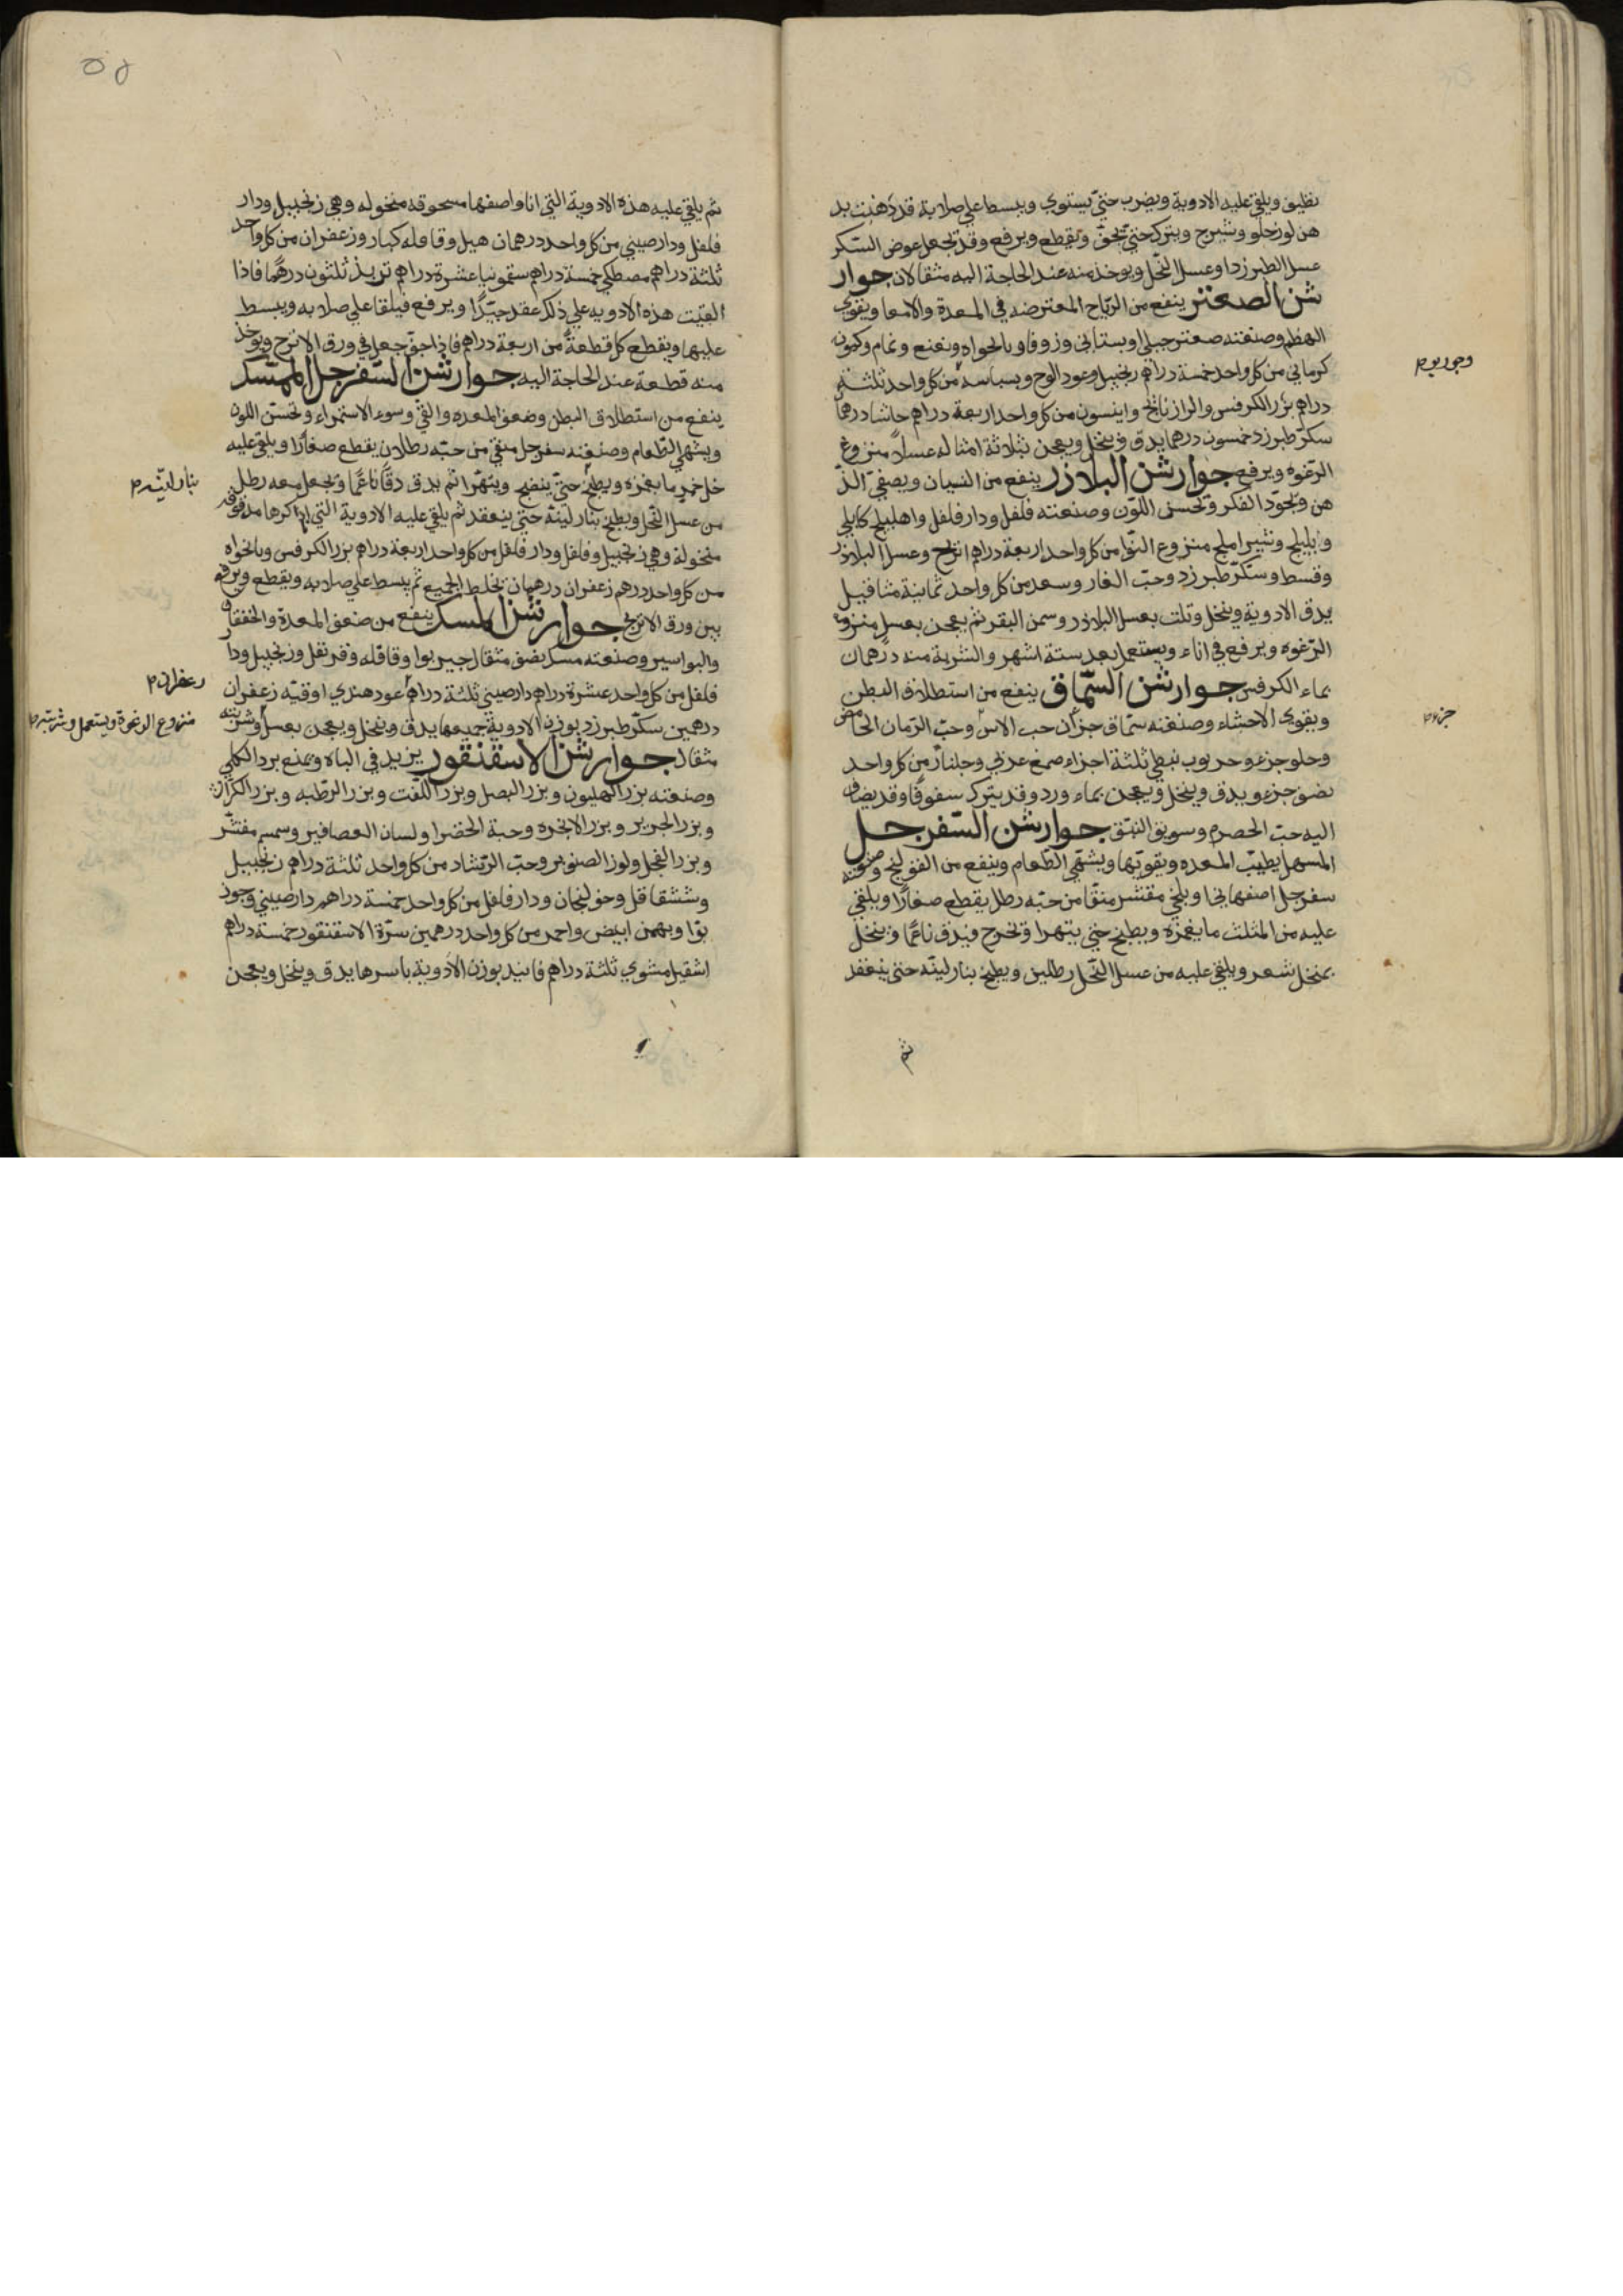 نظيف ويلقي عليه الادوية ويضرب حتي يستوي ويبسط علي صلابة قد دهنت بد
هن لوز حلو وشيرج ويترك حتي يجف ويقطع ويرفع وقد يجعل عوض السكر
عسل الطبرزد او عسل النحل ويوخذ منه عند الحاجة اليه مثقالان جوار
شن الصعتر ينفع من الرياح المعترضه في المعدة والامعا ويقوي
الهظم وصنعته صعتر جبلي او بستاني وزوفا ونانخواه ونعنع ونمام وكمون
كرماني من كل واحد خمسة دراهم زنجبيل وعود الوج وبسباسه من كل واحد ثلثة
وجوزبوا
دراهم بزر الكرفس والرازنانج وانيسون من كل واحد اربعة دراهم حاشا درهما
سكر طبرزد خمسون درهما يدق وينخل ويعجن بثلاثة امثاله عسلا منزوع
الرغوه ويرفع جوارشن البلاذر ينفع من النسيان ويصفي الذ
هن ويجود الفكر وتحسن اللون وصنعته فلفل ودار فلفل واهليلج كابلي
وبليلج وشير املج منزوع النوا من كل واحد اربعة دراهم اترج وعسل البلاذر
وقسط وسكر طبرزد وحب الغار وسعد من كل واحد ثمانية مثاقيل
يدق الادوية وينخل وتلت بعسل البلاذر وسمن البقر ثم يعجن بعسل منزوع
الرغوه ويرفع في اناء ويستعمل بعد ستة اشهر والشربة منه درهمان
بماء الكرفس جوارشن السماق ينفع من استطلاق البطن
ويقوي الاحشاء وصنعته سماق جزان حب الاس وحب الرمان الحامض
جزء
وحلو جزء وخرنوب نبطي ثلثة اجزاء صمغ عربي وجلنار من كل واحد
نصف جزء ويدق وينخل ويعجن بماء ورد وقد يترك سفوفا وقد يضاف
اليه حب الحصرم وسويق النبق جوارشن السفرجل
المسهل يطيب المعده ويقويها ويشهي الطعام وينفع من القولنج وصنعته
سفرجل اصفهاني او بلخي مقشر منقا من حبه رطل يقطع صغارا ويلقي
عليه من المثلث ما يغمره ويطبخ حتي يتهرا وتخرج فيدق ناعما وينخل
بمنخل شعر ويلقي عليه من عسل النحل رطلين ويطبخ بنار لينه حتي ينعقد
ثم
ثم يلقي عليه هذه الادوية التي انا واصفها مسحوقه منخوله وهي زنجبيل ودار
فلفل ودارصيني من كل واحد درهمان هيل وقاقله كبار وزعفران من كل واحد
ثلثة دراهم مصطكي خمسة دراهم سقمونيا عشرة دراهم تربذ ثلثون درهما فاذا
القيت هذه الادويه علي ذلك عقد جيدا ويرفع فيلقا علي صلابه ويبسط
عليها ويقطع كل قطعة من اربعة دراهم فاذا جف جعل في ورق الاترج ويوخذ
منه قطعة عند الحاجة اليه جوارشن السفرجل الممسك
ينفع من استطلاق البطن وضعف المعده والقي وسوء الاستمراء وتحسن اللون
ويشهي الطعام وصنعته سفرجل منقي من حبه رطلان يقطع صغارا ويلقي عليه
خل خمر ما يغمره ويطبخ حتي ينضج ويتهرا ثم يدق دقا ناعما ويجعل معه رطل
بنار لينه
من عسل النحل ويطبخ بنار لينة حتي ينعقد ثم يلقي عليه الادوية التي اذاكرها مدقوقه
منخولة وهي زنجبيل وفلفل ودار فلفل من كل واحد اربعة دراهم بزر الكرفس ونانخواه
من كل واحد درهم زعفران درهمان يخلط الجميع ثم يبسط علي صلابه ويقطع ويرفع
بين ورق الاترج جوارشن المسك ينفع من ضعف المعدة والخفقان
والبواسير وصنعته مسك نصف مثقال جيربوا وقاقله وقرنفل وزنجبيل ودا
زعفران
فلفل من كل واحد عشرة دراهم دارصيني ثلثة دراهم عود هندي اوقيه زعفران
درهمين سكر طبرزد بوزن الادوية جميعها يدق وينخل ويعجن بعسل وشربته
منزوع الرغوة ويستعمل وشربته
مثقال جوارشن الاسقنقور يزيد في الباه ويمنع برد الكلي
وصنعته بزر الهليون وبزر البصل وبزر اللفت وبزر الرطبه وبزر الكراث
وبزر الجزر وبزر الانجره وحبة الخضرا ولسان العصافير وسمسم مقشر
وبزر الفجل ولوز الصنوبر وحب الرشاد من كل واحد ثلثة دراهم زنجبيل
وششقاقل وخولنجان ودار فلفل من كل واحد خمسة دراهم دارصيني وجوز
بوا وبهمن ابيض واحمر من كل واحد درهمين سرة الاسقنقور خمسة دراهم
اشقيل مشوي ثلثة دراهم فانيد بوزن الادوية باسرها يدق وينخل ويعجن